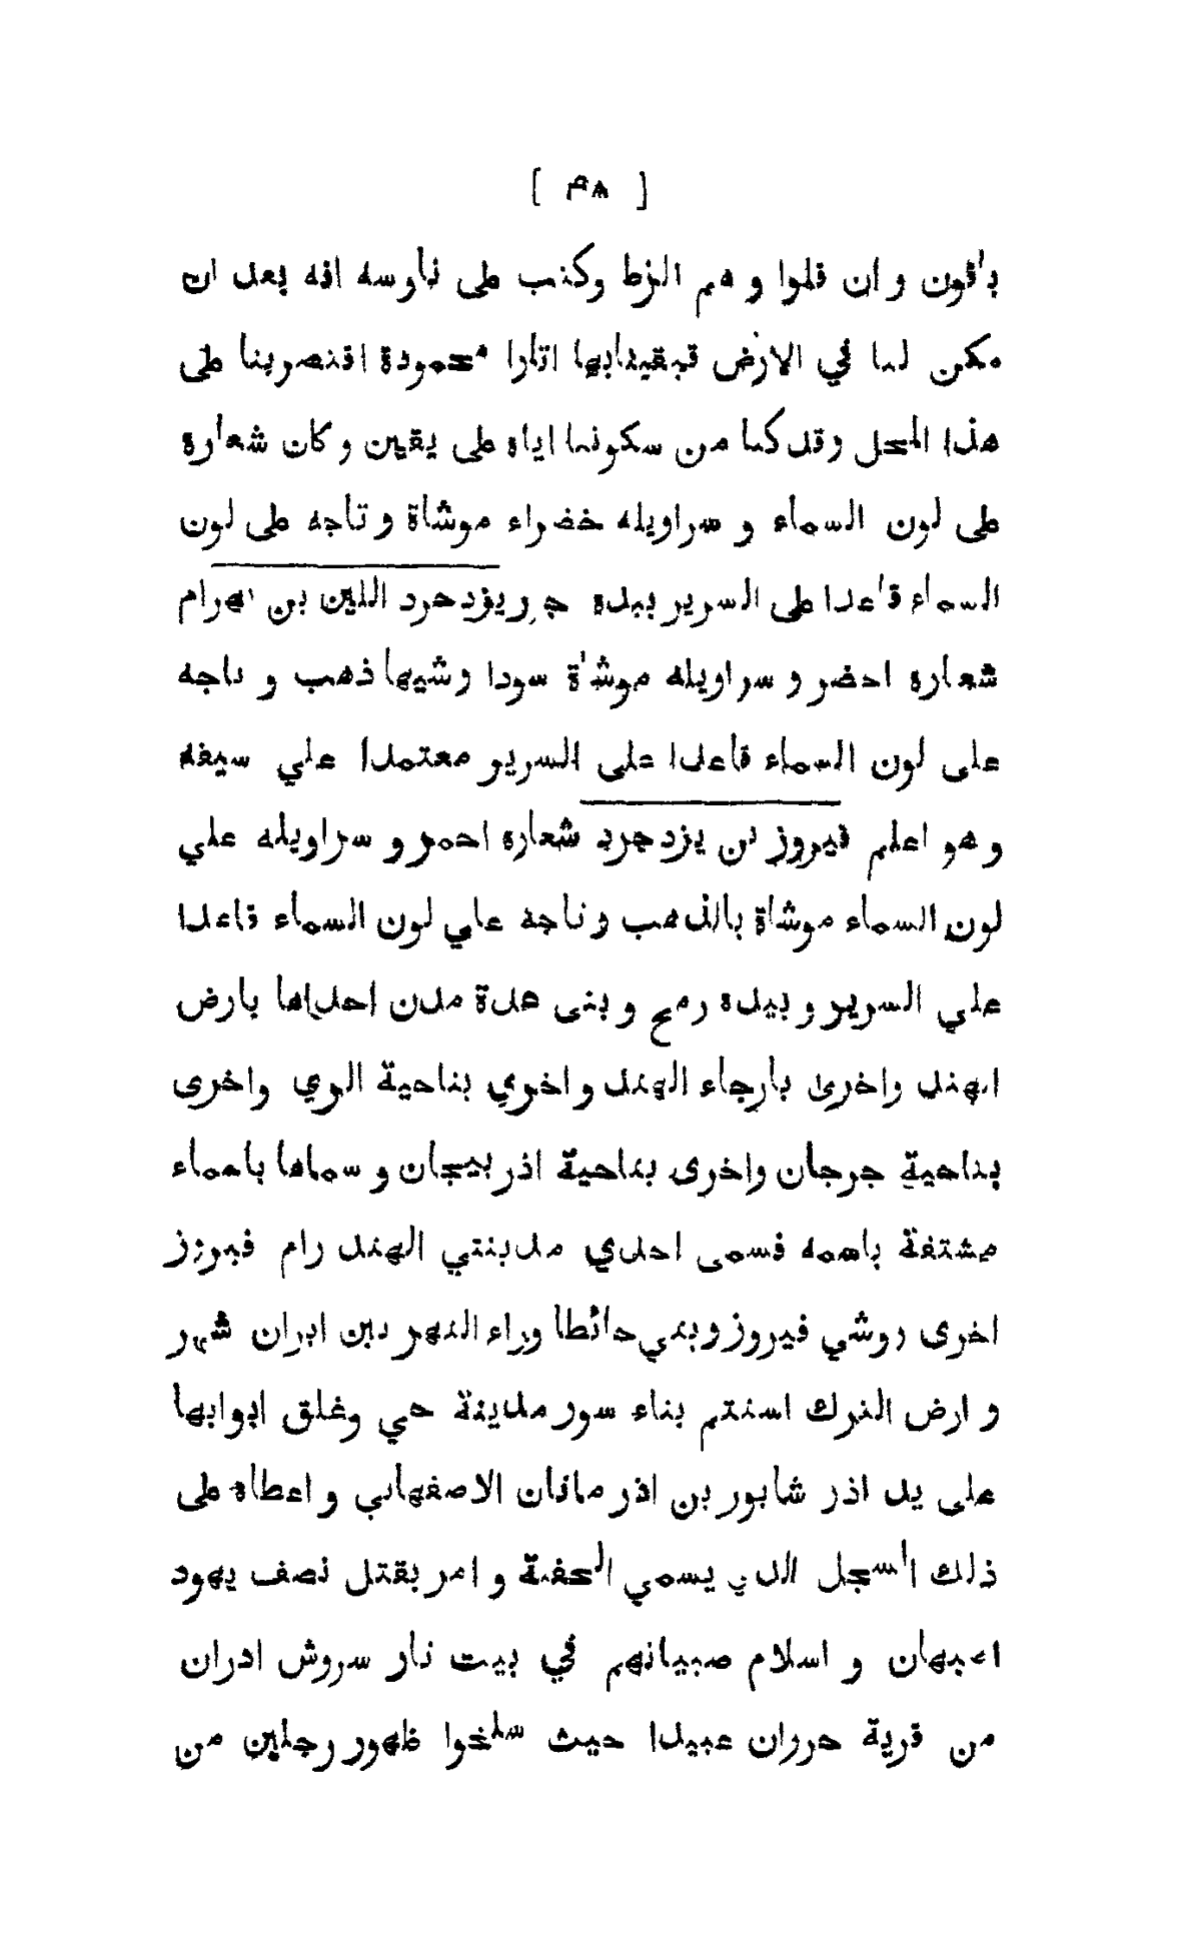 [ ٣٨ ]
باقون و ان قلوا و هم الزط وكتب على ناوسه انه بعد ان
مكن لنا في الارض قبقينابها اثارا محمودة اقتصربنا على
هذا المحل وقد كنا من سكوننا اياه على يقين وكان شعاره
على لون السماء و سراويله خضراء موشاة و تاجه على لون
السماء قاعدا على السرير بيده يزدجرد اللين بن بهرام
شعاره اخضر و سراويله موشاة سودا وشيها ذهب و تاجه
على لون السماء قاعدا على السرير معتمدا علي سيفه
و هو اعلم فيروز بن يزدجرد شعاره احمر و سراويله علي
لون السماء موشاة بالذهب و تاجه علي لون السماء قاعدا
علي السرير و بيده رمح و بنى عدة مدن احداها بارض
الهند واخرى بارجاء الهند و اخري بناحية الري واخرى
بناحية جرجان واخرى بناحية اذربيجان و سماها باسماء
مشتقة باسمه فسمى احدي مدينتي الهند رام فيروز
اخرى روشي فيروز و بني حائطا وراء النهر بين ايران شهر
و ارض الترك استتم بناء سور مدينة جي وغلق ابوابها
على يد اذر شابور بن اذر مانان الاصفهاني و اعطاه على
ذلك السجل الذي يسمي و امر بقتل نصف يهود
اصبهان و اسلام صبيانهم في بيت نار سروش ادران
من قرية حروان عبيدا حيث سلخوا ظهور رجلين من